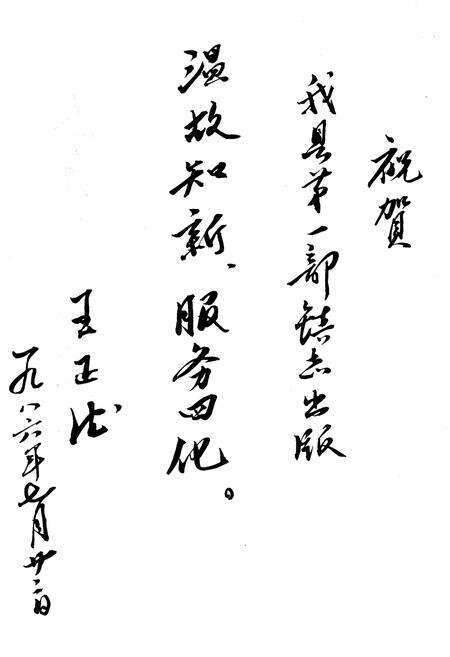 祝贺
我县第一部镇志出版
温故知新、服务四化。
王正
一九八六年七月廿二日